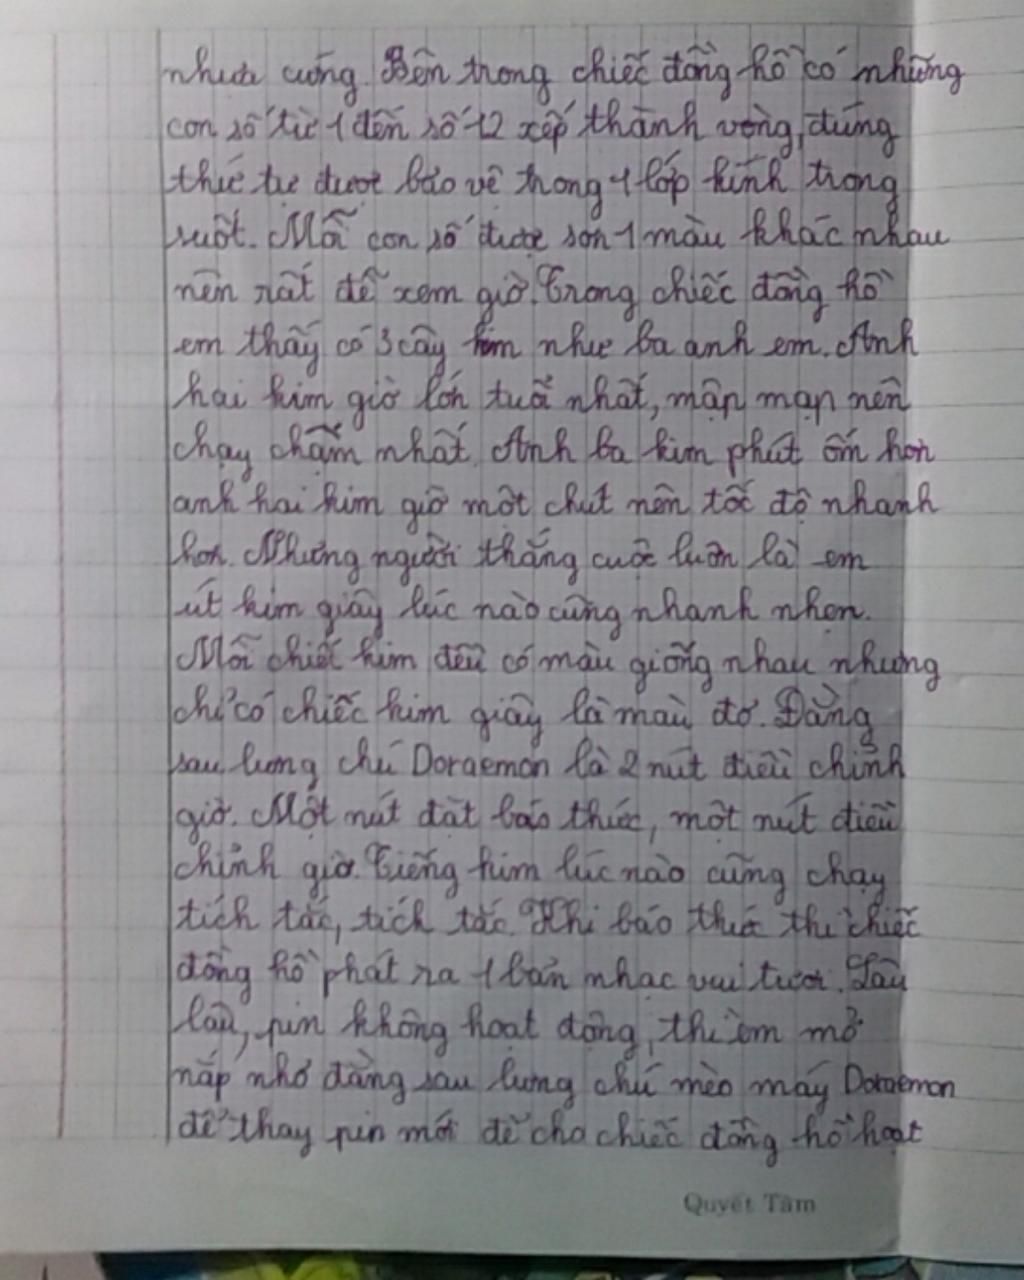 nhựa cứng. Bên trong chiếc đồng hồ có những
con số từ 1 đến số 12 xếp thành vòng, đúng
thứ tự được bảo vệ trong 1 lớp kính trong
suốt. Mỗi con số được sơn 1 màu khác nhau
nên rất dễ xem giờ. Trong chiếc đồng hồ
em thấy có 3 cây kim như ba anh em. Anh
hai kim giờ lớn tuổi nhất, mập mạp nên
chạy chậm nhất. Anh ba kim phút ốm hơn
anh hai kim giờ một chút nên tốc độ nhanh
hơn. Nhưng người thắng cuộc luôn là em
út kim giây lúc nào cũng nhanh nhẹn.
Mỗi chiếc kim đều có màu giống nhau nhưng
chỉ có chiếc kim giây là màu đỏ. Đằng
sau lưng chú Doraemon là 2 nút điều chỉnh
giờ. Một nút đặt báo thức, một nút điều
chỉnh giờ. Tiếng kim lúc nào cũng chạy
tích tắc, tích tắc. Khi báo thức thì chiếc
đồng hồ phát ra 1 bản nhạc vui tươi. Lâu
lâu, pin không hoạt động, thì em mở
nắp nhỏ đằng sau lưng chú mèo máy Doraemon
để thay pin mới để cho chiếc đồng hồ hoạt
Quyết Tâm